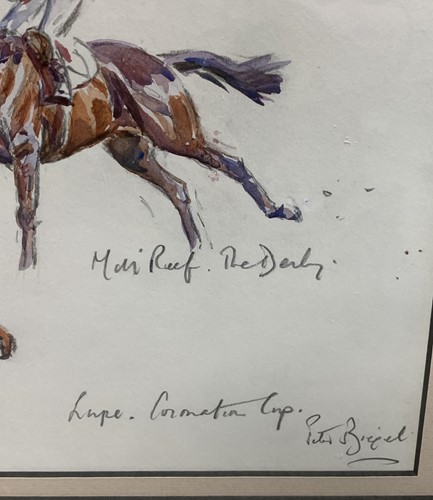 Mill Reef. The Derby.
Lupe. Coronation Cup.
Peter Biegel